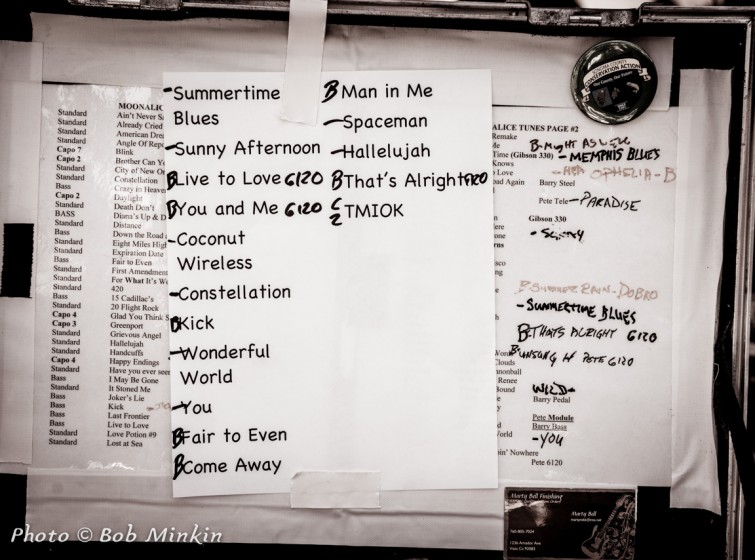 MOONALIC
Standard Ain't Never S
Standard Already Cried
Standard American Drea
Standard Angle Of Repo
Capo 7 Blink
Capo 2 Brother Can Y
Standard City of New Or
Standard Constellation
Bass Crazy in Heaven
Capo 2 Daylight
Standard Death Don't
BASS Diana's Up & D
Standard Distance
Bass Down the Road
Standard Eight Miles High
Standard Expiration Date
Bass Fair to Even
Standard First Amendment
Standard For What It's Wo
Standard 420
Bass 15 Cadillac's
Standard 20 Flight Rock
Capo 4 Glad You Think S
Capo 3 Greenport
Standard Grievous Angel
Standard Hallelujah
Standard Handcuffs
Capo 4 Happy Endings
Standard Have you ever seen
Bass I May Be Gone
Standard It Stoned Me
Bass Joker's Lie
Bass Kick
Bass Last Frontier
Bass Live to Love
Standard Love Potion #9
Standard Lost at Sea
- Summertime
Blues
- Sunny Afternoon
B Live to Love 6120
B You and Me 6120
- Coconut
Wireless
- Constellation
B Kick
- Wonderful
World
- You
B Fair to Even
B Come Away
B Man in Me
- Spaceman
- Hallelujah
B That's Alright 6120
TMIOK
CONSERVATION ACTION
ALICE TUNES PAGE #2
Remake
Time (Gibson 330) - MEMPHIS BLUES
Knows
OPHELIA - B
oad Again Barry Steel
Pete Tele - PARADISE
Gibson 330
B SUMMER RAIN - DOBRO
- SUMMERTIME BLUES
B THATS ALRIGHT 6120
B UNSUNG H PETE 6120
Clouds
nnonball
Renee
Bound WILD -
Barry Pedal
Pete Module
Barry Bass
World - YOU
oin' Nowhere
Pete 6120
Marty Bell Finishing
Marty Bell
Photo © Bob Minkin